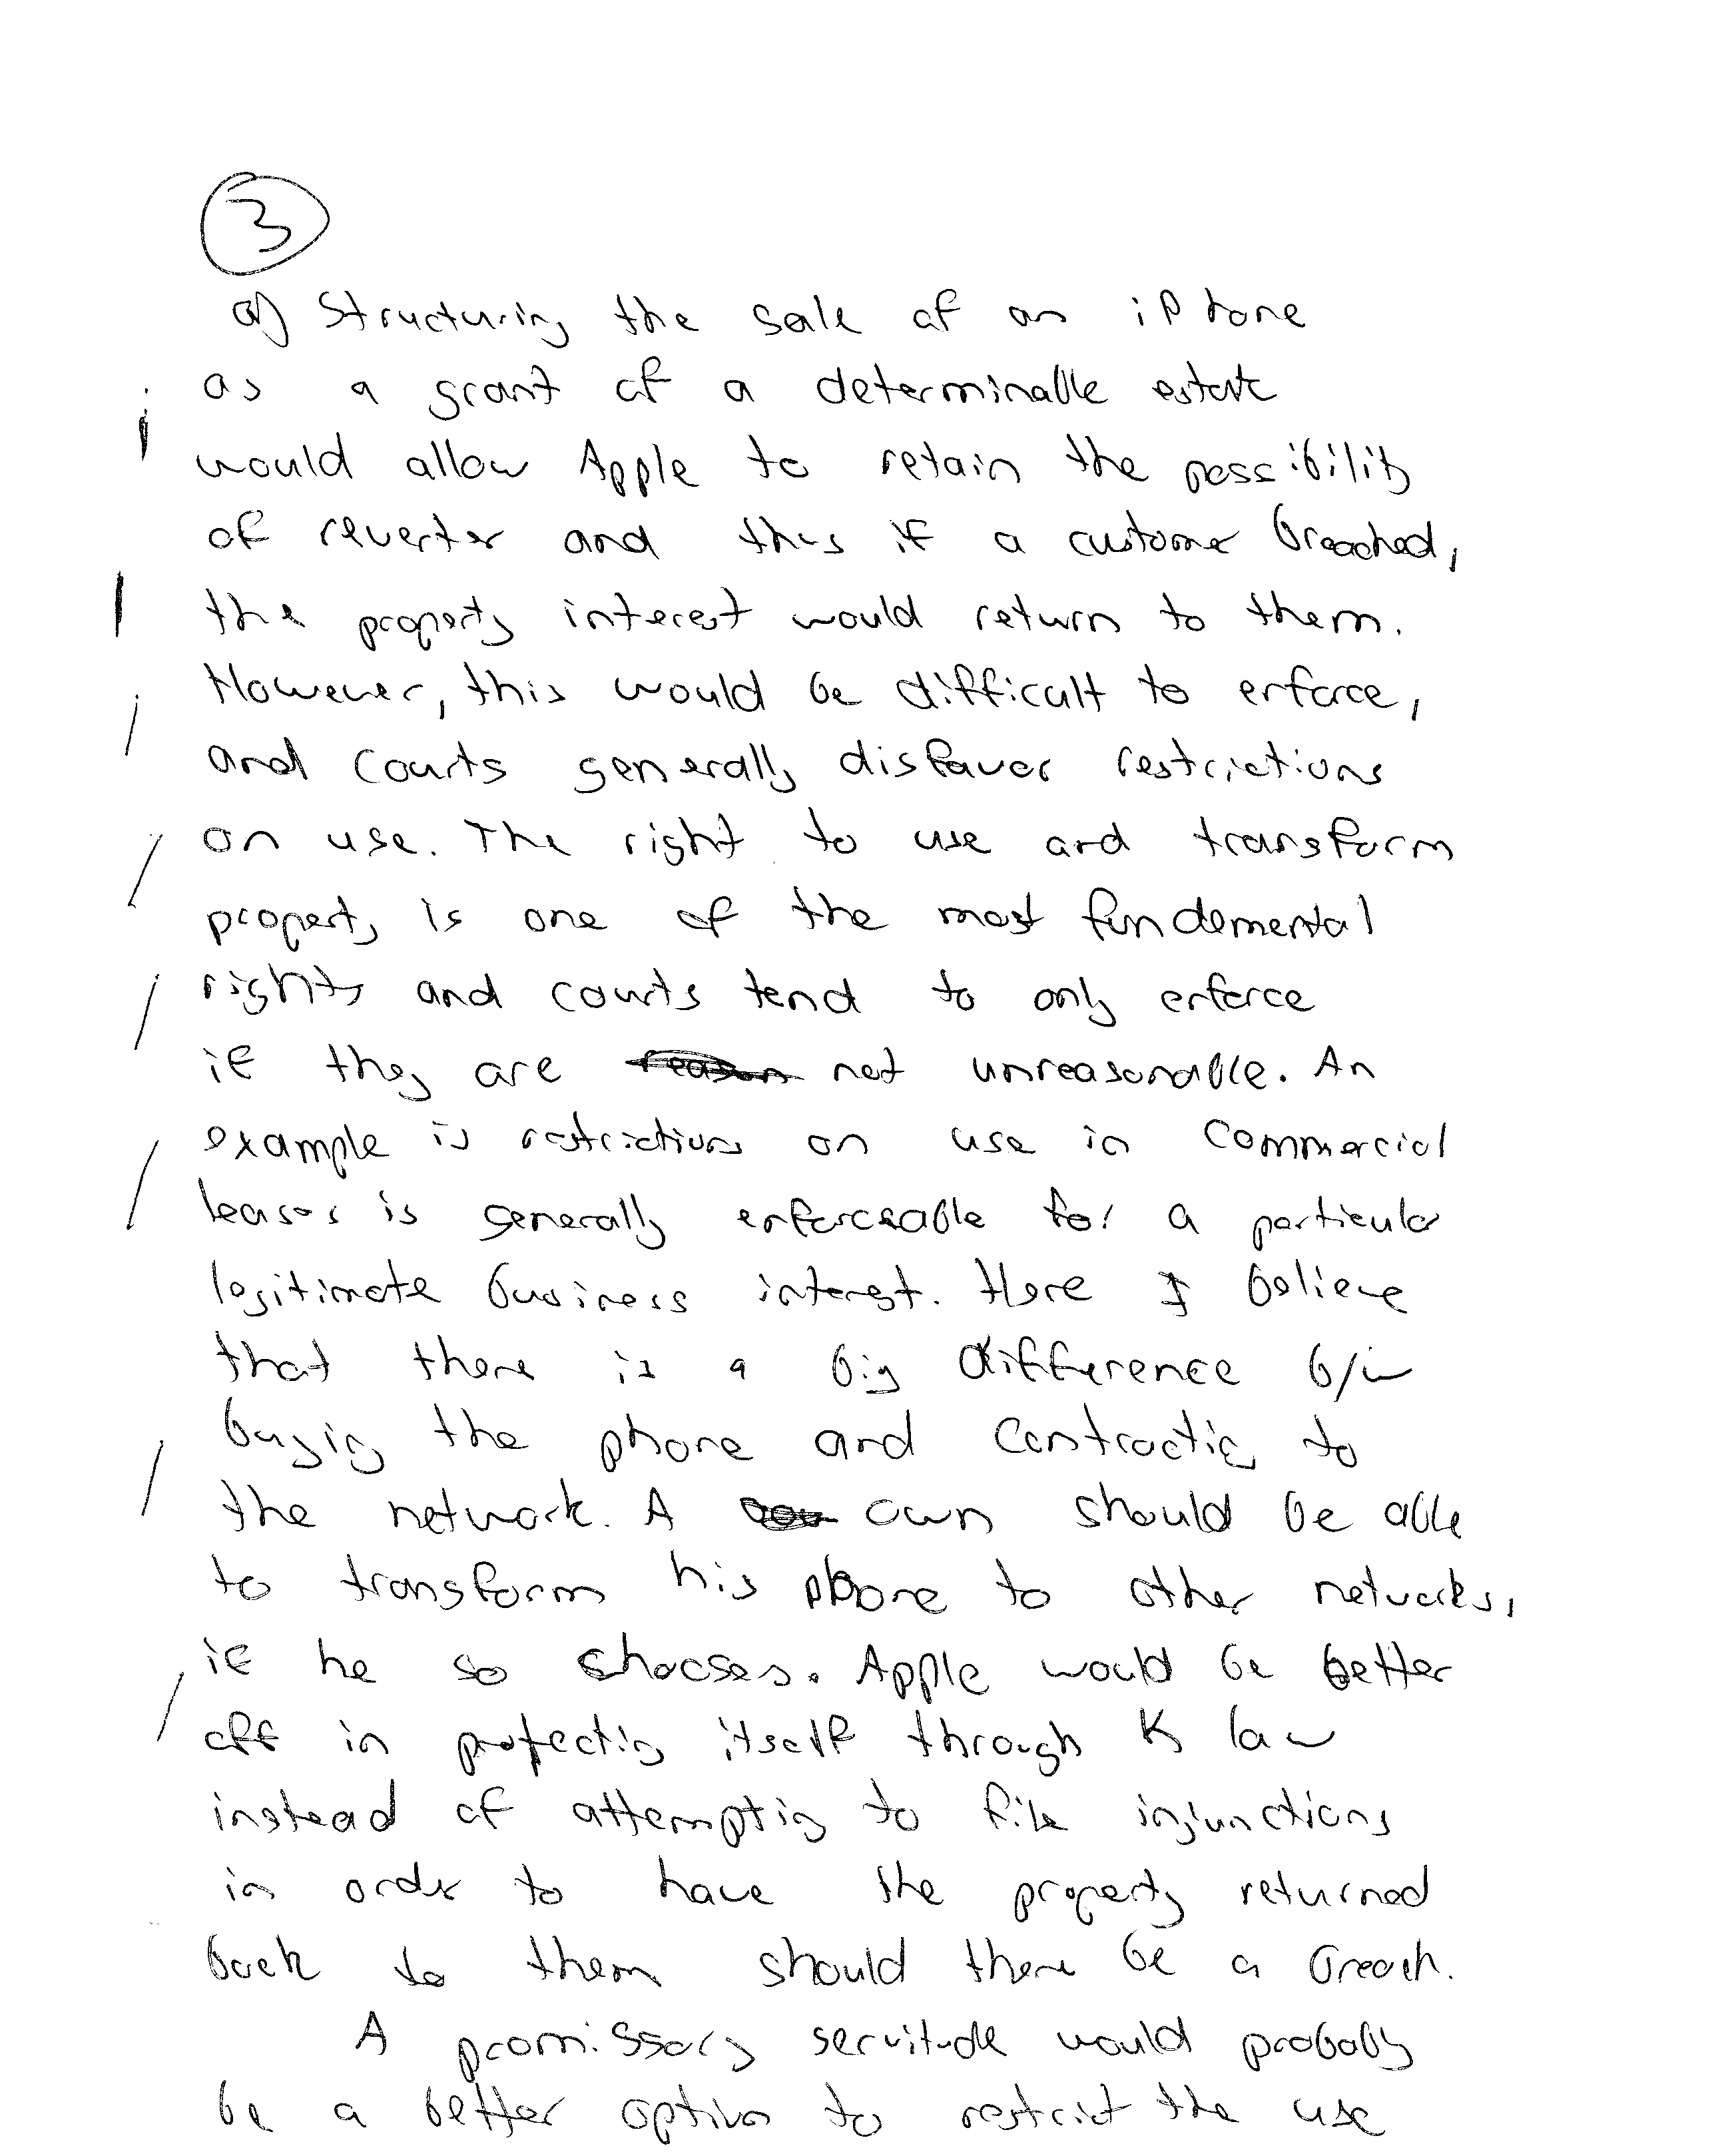 3
a) Structuring the sale of an iPhone
as a grant of a determinable estate
would allow Apple to retain the possibility
of reverter and thus if a customer breached,
the property interest would return to them.
However, this would be difficult to enforce,
and courts generally disfavor restrictions
on use. The right to use and transform
property is one of the most fundemental
rights and courts tend to only enforce
if they are not unreasonable. An
example is restrictions on use in commercial
leases is generally enforceable for a particular
legitimate business interest. Here I believe
that there is a big difference b/w
buying the phone and contracting to
the network. A own should be able
to transform his phone to other networks,
if he so chooses. Apple would be better
off in protecting itself through K law
instead of attempting to file injunctions
in order to have the property returned
back to them should there be a breach.
A promissory servitude would probably
be a better option to restrict the use